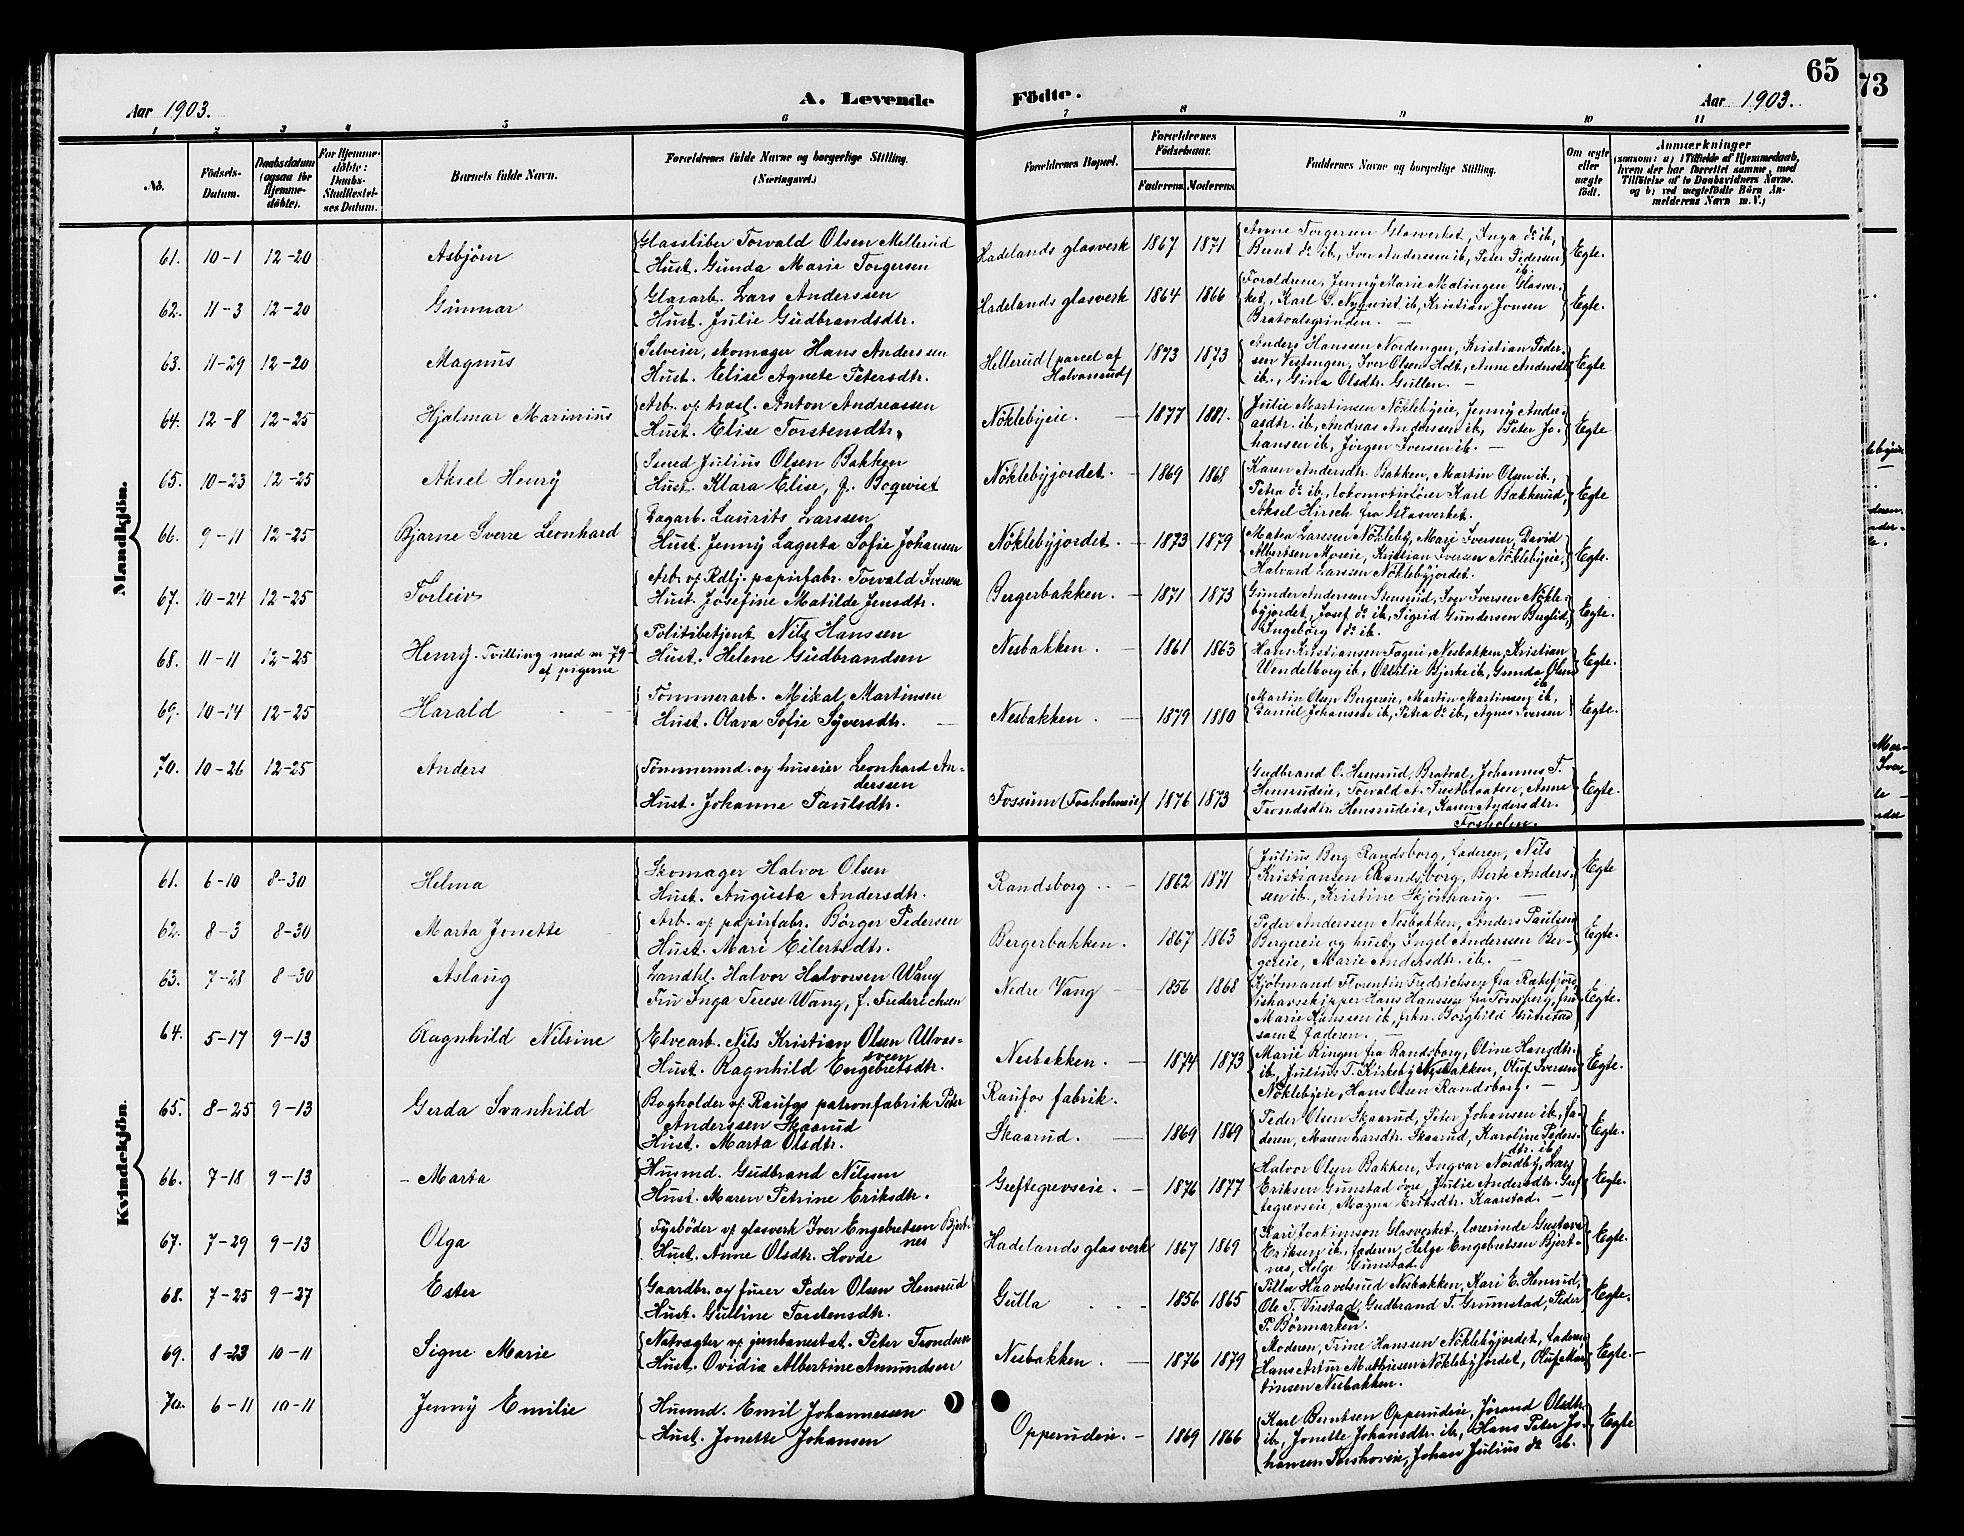 65
73
Aar 1903.
A. Levende
Födte.
Aar 1903.
1 2 3 4 5 6 7 8 9 10 11
No.
Födsels-Datum.
Daabsdatum (ogsaa for Hjemme-döbte).
For Hjemme-döbte: Daabs-Stadfæstelses Datum.
Barnets fulde Navn.
Forældrenes fulde Navne og borgerlige Stilling. (Næringsvei.)
Forældrenes Bopæl.
Forældrenes Födselsaar.
Faderens. Moderens.
Faddernes Navne og borgerlige Stilling.
Om ægte eller uægte födt.
Anmærkninger
(saasom: a) i Tilfælde af Hjemmedaab, hvem der har forrettet samme, med Tilföielse af to Daabsvidners Navne. og b) ved uægtefödte Börn Anmelderens Navn m. V.)
Mandkjön.
61. 10-1 12-20 Asbjörn
Glassliber Torvald Olsen Mellerud
Hust. Gunda Marie Torgersen
Hadelands glasverk 1867 1871
Anne Torgersen Glasverket, Inga do ib.,
Bernt do ib., Iver Anderssen ib., Peter Pedersen ib.
Egte.
62. 11-3 12-20 Gunnar
Glasarb. Lars Anderssen
Hust. Julie Gudbrandsdtr.
Hadelands glasverk 1864 1866
Foreldrene, Jenny Marie Malingen Glasver-
ket, Karl G. Nyqvist ib., Kristian Jonsen
Bratvalsgrinden.
Egte.
63. 11-29 12-20 Magnus
Selveier, skomager Hans Anderssen
Hust. Elise Agnete Petersdtr.
Hellerud (parcel af
Halvorsrud) 1873 1873
Anders Hanssen Nordengen, Kristian Peder-
sen Vestengen, Iver Olsen Holt, Anne Andersdtr
ib., Gina Olsdtr. Gullen.
Egte
64. 12-8 12-25 Hjalmar Marinius
Arb. v/ træsl. Anton Andreassen
Hust. Elise Torstensdtr.
Nöklebyeie. 1877 1881.
Julie Martinsen Nöklebyeie, Jenny Andre-
asdtr. ib., Andreas Anderssen ib., Peter Jo-
hansen ib., Jörgen Iversen ib.
Egte
65. 10-23 12-25 Aksel Henry
Smed Julius Olsen Bakken
Hust. Klara Elise, f. Boqvist
Nöklebyjordet. 1869 1868
Karen Andersdtr. Bakken, Martin Olsen ib.,
Petra do ib., lokomotivförer Karl Bækkerud,
Aksel Hirsch fra Glasverket.
Egte
66. 9-11 12-25 Bjarne Sverre Leonhard
Dagarb. Laurits Larssen
Hust. Jenny Lagerta Sofie Johansen
Nöklebyjordet. 1873 1879
Matea Larssen Nökleby, Mari Iversen, David
Albertsen Moseie, Kristian Iversen Nöklebyeie,
Halvard Larssen Nöklebyjordet.
Egte.
67. 10-24 12-25 Torleiv
Arb. v/ Rdfj. papirfabr. Torvald Iversen
Hust. Josefine Matilde Jensdtr.
Bergerbakken. 1871 1873
Gunder Andersen Stensrud, Iver Iversen Nökle-
byjordet, Josef do ib., Sigrid Gundersen Berglid,
Ingeborg do ib.
Egte.
68. 11-11 12-25 Henry. Tvilling med no 79
af pigerne
Politibetjent Nils Hanssen
Hust. Helene Gudbrandsen
Nesbakken. 1861 1863
Hans Kristiansen Fageri, Nesbakken, Kristian
Wendelborg ib., Ottilie Bjerke ib., Gunda Olsen ib.
Egte.
69. 10-14 12-25 Harald
Tömmerarb. Mikal Martinsen
Hust. Olava Sofie Syversdtr.
Nesbakken. 1879 1880
Martin Olsen Bergereie, Martin Martinsen ib.,
Daniel Johanssen ib., Petra do ib., Agnes Iversen
Egte.
70. 10-26 12-25 Anders
Tömmermd. og huseier Leonhard An-
derssen
Hust. Johanne Paulsdtr.
Fossum (Fosholmeie) 1876 1873
Gudbrand O. Hensrud, Bratval, Johannes T.
Hensrudeie, Torvald A. Tveitbraaten, Anne
Trondsdtr. Hensrudeie, Karen Andersdtr.
Fosholm.
Egte.
Kvindekjön.
61. 6-10 8-30 Helma
Skomager Halvor Olsen
Hust. Augusta Andersdtr.
Randsborg 1862 1871
Julius Berg Randsborg, faderen, Nils
Kristiansen Randsborg, Berte Anders-
sen ib., Kristine Skjönhaug.
Egte
62. 8-3 8-30 Marta Jonette
Arb. v/ papirfabr. Börger Pedersen
Hust. Mari Eilertsdtr.
Bergerbakken. 1867 1863
Peder Anderssen Nesbakken, Anders Paulsen
Bergereie og hustr. Ingel Anderssen Ber-
gereie, Marie Andersdtr. ib.
Egte.
63. 7-28 8-30 Aslaug
Landhl. Halvor Halvorsen Wang
Fru Inga Terese Wang, f. Frederichsen
Nedre Vang 1856 1868
Kjöbmand Florentin Fredrichsen fra Rakefjord,
ishavsskipper Hans Hanssen fra Tönsberg, fru
Marie Hanssen ib., frkn. Borghild Gunstad
samt faderen.
Egte.
64. 5-17 9-13 Ragnhild Nilsine
Elvearb. Nils Kristian Olsen Ulvas-
sveen
Hust. Ragnhild Engebretsdtr.
Nesbakken. 1874 1873
Marie Ringen fra Randsborg, Oline Hansdtr.
ib., Julius T. Kirkeby Nesbakken, Oluf Iversen
Nöklebyeie, Hans Olsen Randsborg.
Egte.
65. 8-25 9-13 Gerda Svanhild
Bogholder v/ Raufos patronfabrik Peter
Anderssen Skaarud
Hust. Marta Olsdtr.
Raufos fabrik.
Skaarud. 1869 1869
Peder Olsen Skaarud, Peter Johansen ib., fa-
deren, Maren Larsdtr. Skaarud, Karoline Peders-
dtr. ib.
Egte.
66. 7-18 9-13 Marta
Husmd. Gudbrand Nilsen
Hust. Maren Petrine Eriksdtr.
Geeftegrevseie. 1876 1877
Halvor Olsen Bakken, Ingvar Nordby, Lars
Eriksen Gunstad övre, Julie Andersdtr. Gef-
tegrevseie, Magna Eriksdtr. Kaarstad.
Egte.
67. 7-29 9-13 Olga
Fyrböder v/ glasverk Iver Engebretsen Bjert-
nes
Hust. Anne Olsdtr. Hovde
Hadelands glasverk 1867 1869
Kari Joakimson Glasverket, lærerinde Gustava
Eriksen ib., faderen, Helge Engebretsen Bjert-
nes, Helge Gunstad.
Egte.
68. 7-25 9-27 Ester
Gaardbr. og furer Peder Olsen Hensrud
Hust. Gulline Torstensdtr.
Gulla 1856 1865
Pilla Haavelsrud Nesbakken, Kari E. Hensrud,
Ole T. Virstad, Gudbrand T. Grumstad, Peder
P. Börmarken.
Egte.
69. 8-23 10-11 Signe Marie
Natvagter v/ jernbanestat. Peter Trondsen
Hust. Ovidia Albertine Amundsen
Nesbakken. 1876 1879
Moderen, Trine Hansen Nöklebyjordet, faderen
Hans Artur Mathisen Nöklebyjordet, Oluf Mar-
tinsen Nesbakken.
Egte.
70. 6-11 10-11 Jenny Emilie
Husmd. Emil Johannessen
Hust. Jonette Johansen
Opperudeie. 1869 1866
Karl Berntsen Opperudeie, Jörand Olsdtr.
ib., Jonette Johansdtr. ib., Hans Peter Jo-
hansen Torshoveie, Johan Julius do ib.
Egte